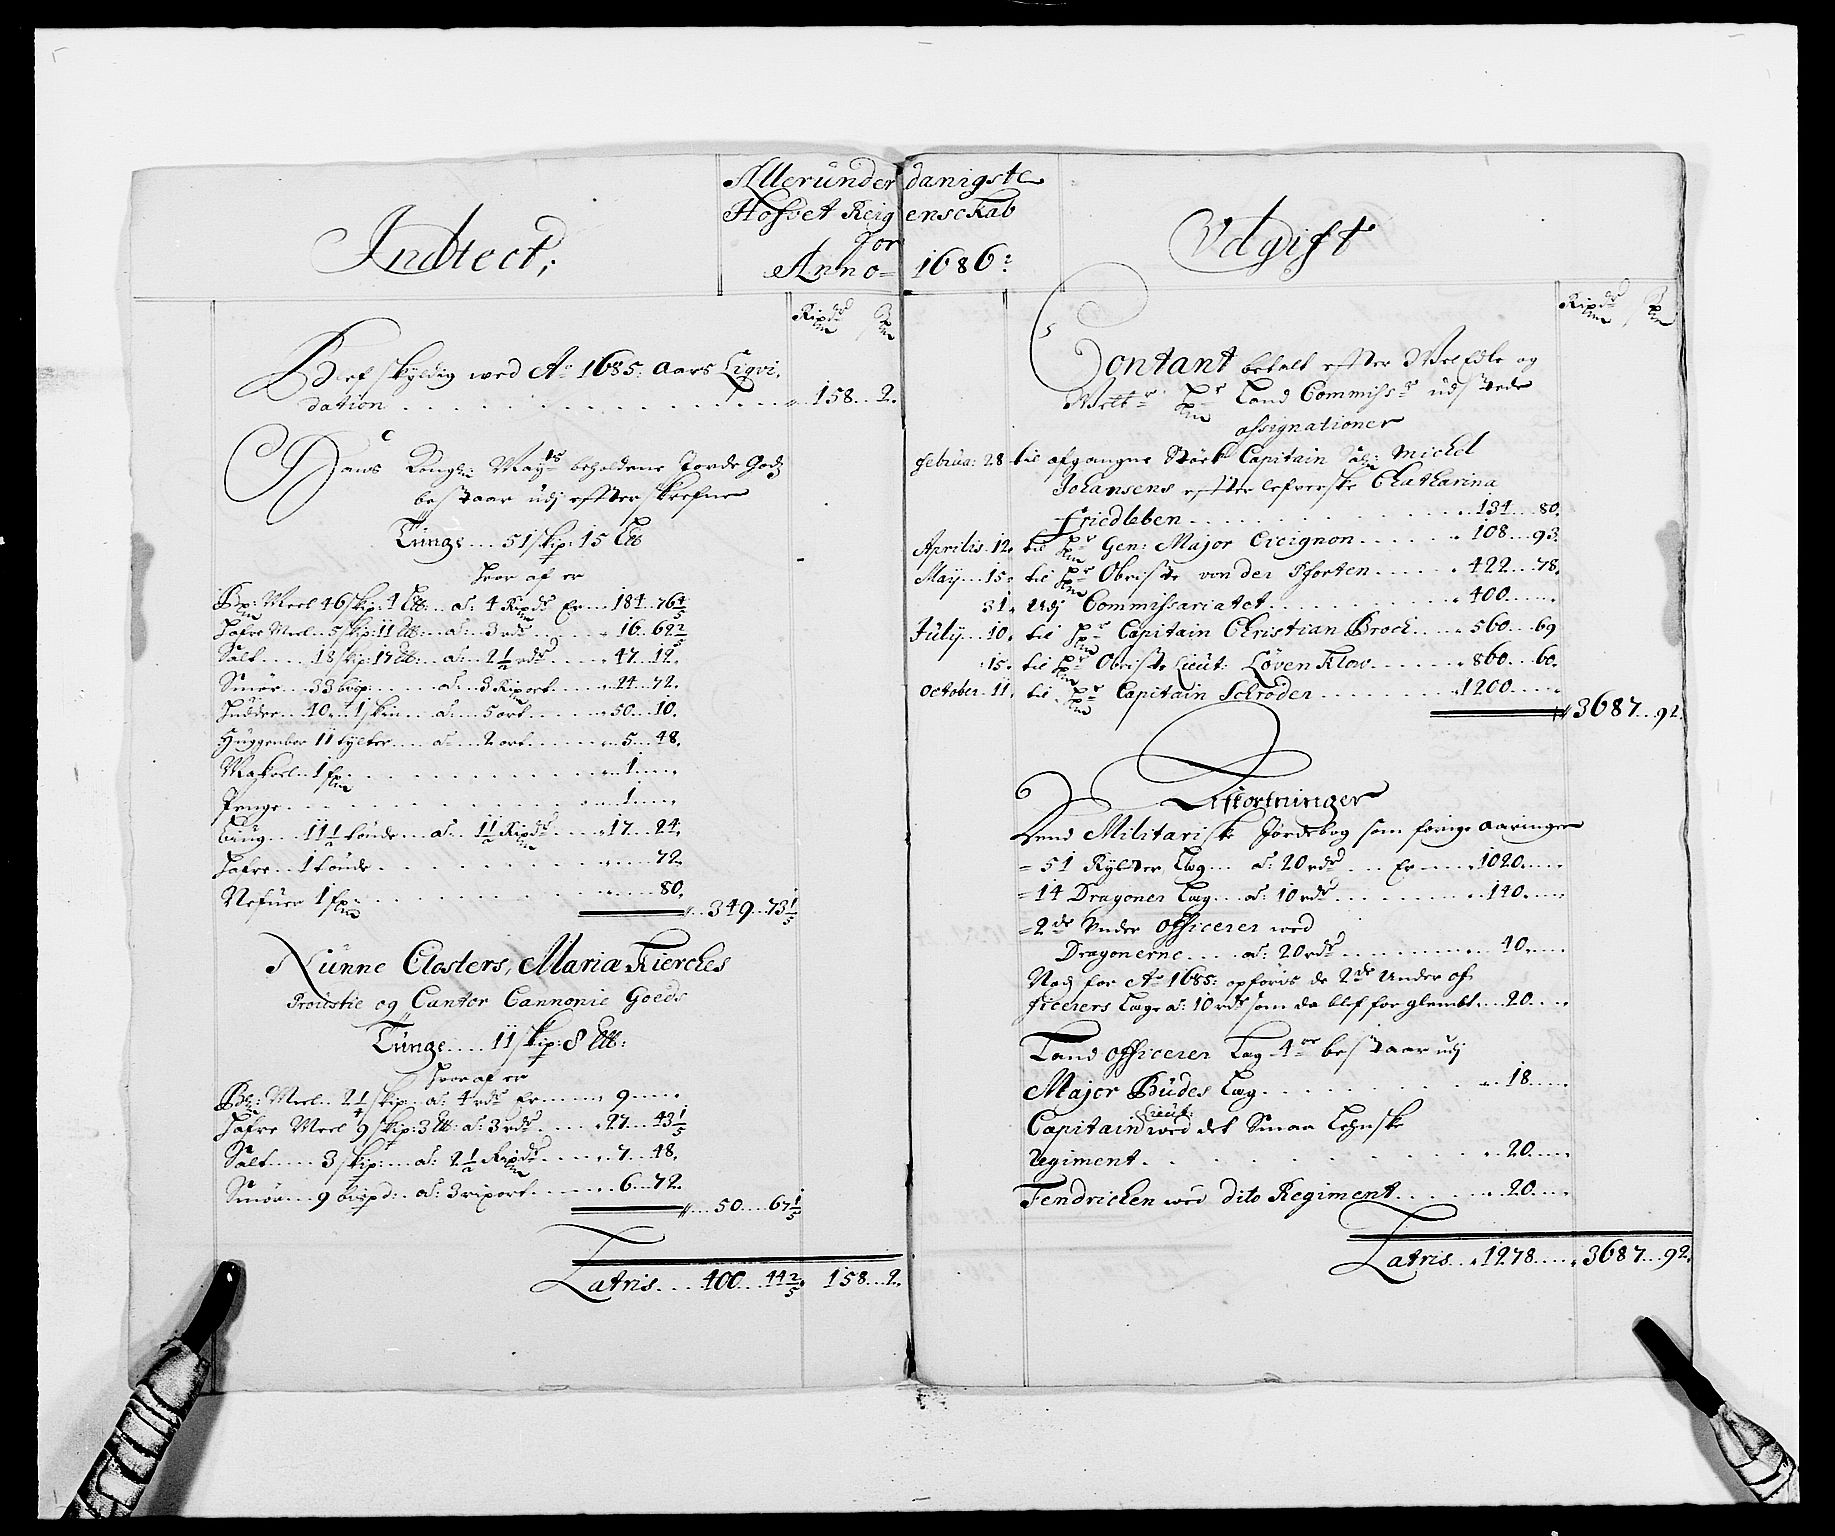 Allerunderdanigste
Hofvet Reigenschab
for
Anno 1686:
Indtect;
Ripdr
Blef skyldig wed Ao 1685: aars Liqvi,
dation . . . 158 . . 2.
Hans Kongl: Mayts beholdene Jorde Godz
bestaar udj effterskrefne
Tünge . . . 51 skip: 15 Lb
hvor af er
Meel 46 skip: 4 Lb: . . a: 4 Ripdr Er . . . 184 . . 76 4/5
Hafre Meel . . 5 skip: 11 Lb: . . a: 3 rdr . . . 16 . . 69 2/5
Salt . . . 18 skip: 17 Lb: . . a: 2 1/2 rdr . . . 47 . . 12.
Smör . . 33 bisp: . . . a: 3 Riport . . . 24 . . 72.
Hudder . . 40 . . 1 skin . . a: 5 ort . . . 50 . . 10.
Huggenber 11 tylter . . a: 2 ort . . . 5 . . 48.
Makrel . . 1 . . . 1 . . .
Penge . . . 1 . . .
Biug . . 11 1/2 tönde . . a: 1 1/2 Ripdr . . . 17 . . 24.
Hafre . . 1 tönde . . . 72.
Nefuer 1 . . . 80.
349 . . 73 1/5
Nünne Closters, Mariæ Kierches
Proustie og Cantor Cannonie Goeds
Tünge . . . 11 skip: 8 Lb:
hvor af er
Meel . . 2 1/4 skip . . a: 4 rdr Er . . . 9 . . .
Hafre Meel 9 skip: 3 Lb: a: 3 rdr . . . 27 . . 43 1/5
Salt . . . 3 skip: . . a: 2 1/2 Ripdr . . . 7 . . 48.
Smör . . 9 bispd: a: 3 riport . . . 6 . . 72.
50 . . . 67 1/5
Latris . . . 400 . . 44 2/5 158 . . 2.
Vdgift
Ripdr
Contant betalt effter WelEdle og
Land Commisss udstede
assignationer
Februa: 28 til afgangne Capitain Sal: Michel
Johansens effterlefverske Chatharina
Friedleben . . . 134 . . 80.
Aprilis 12. til Hr Gen: Major Cicignon . . . 108 . . 93.
May . . 15. til Hr Obriste von der Pforten . . . 422 . . 78.
31. Udj Commissariatet . . . 400 . . .
July . . 10. til Hr Capitain Christian Brock . . . 560 . . 69
15. til Hr Obriste Lieut: Løvenklov . . . 860 . . 60.
October . 11. til Hr Capitain Schrøder . . . 1200 . . .
3687 . . 92.
Afkortninger
Vend Militariske Jordebog som forige aaringer
51 Rytter Læg . . a: 20 rdr . . Er . . . 1020 . . .
14 Dragoner Læg . . a: 10 rdr . . . 140 . . .
2de Under Officerer wed
Dragonerne . . . a: 20 rdr . . . 40 . . .
Nock for Ao 1685: opföris de 2de Under of-
ficerers Læge a: 10 rdr som da blef forglembt . . 20 . . .
Land Officerer Læg 4re bestaar udj
Major Büdes Læg . . . 18 . . .
Capitain Lieut: wed det Smaa Lehnske
Regiment . . . 20 . . .
Fendrichen wed dito Regiment . . . 20 . . .
Latris . . 1278 . . . 3687 . . 92.